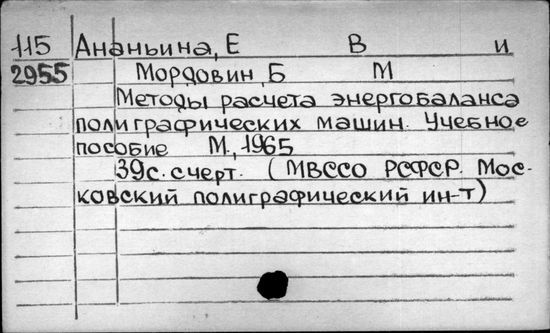 115 Ананьина, Е В и
2955 Мордовин, Б М
Методы расчета энергобаланса
полиграфических машин. Учебное
пособие М., 1965
39с. с черт. (МВССО РСФСР. Мос-
ковский полиграфический ин-т)